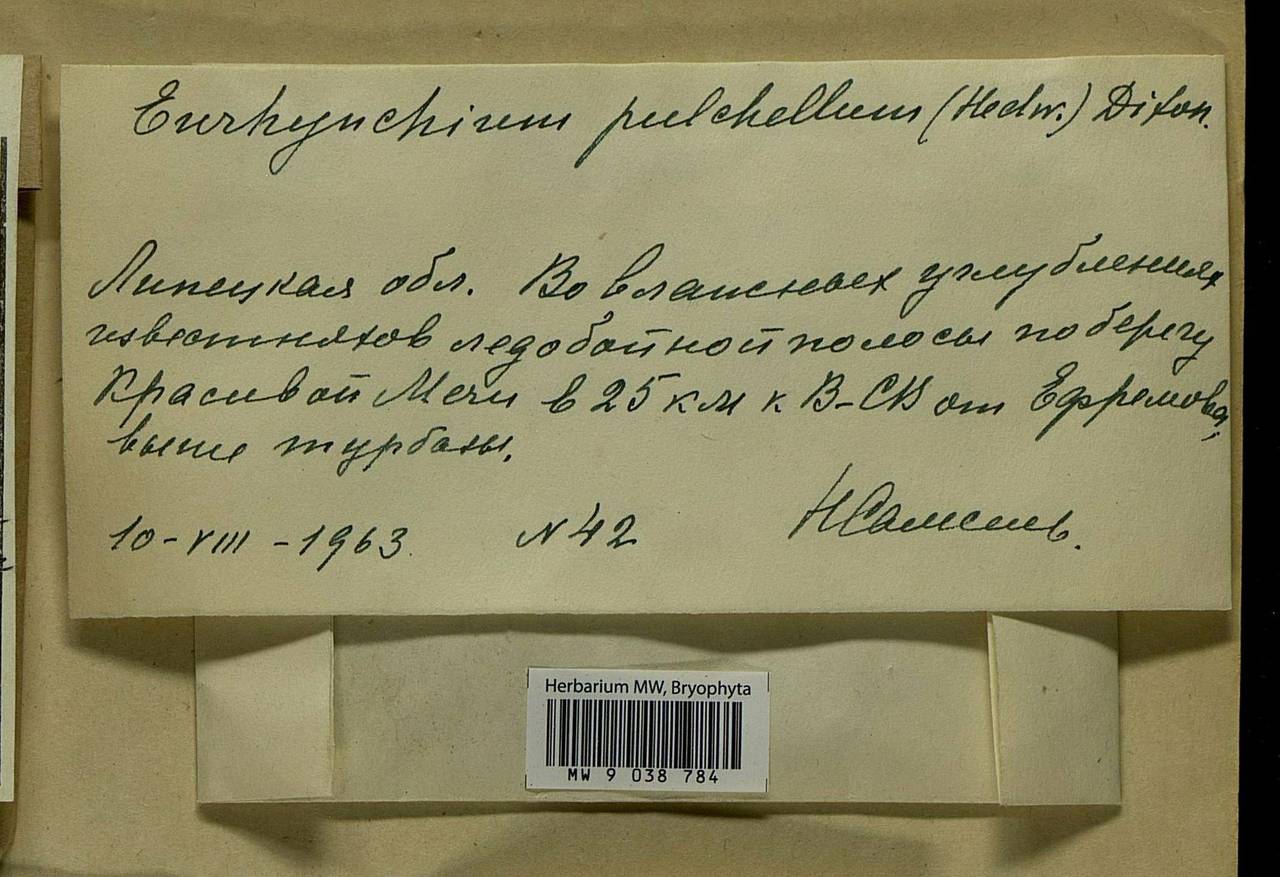 Eurhynchium pulchellum (Hedw.) Dixon.
Липецкая обл. Во влажных углублениях
известняков ледобойной полосы по берегу
Красивой Мечи в 25 км к В-СВ от Ефремова,
выше турбазы.
10-VIII-1963. N 42
Herbarium MW, Bryophyta
MW 9 038 784